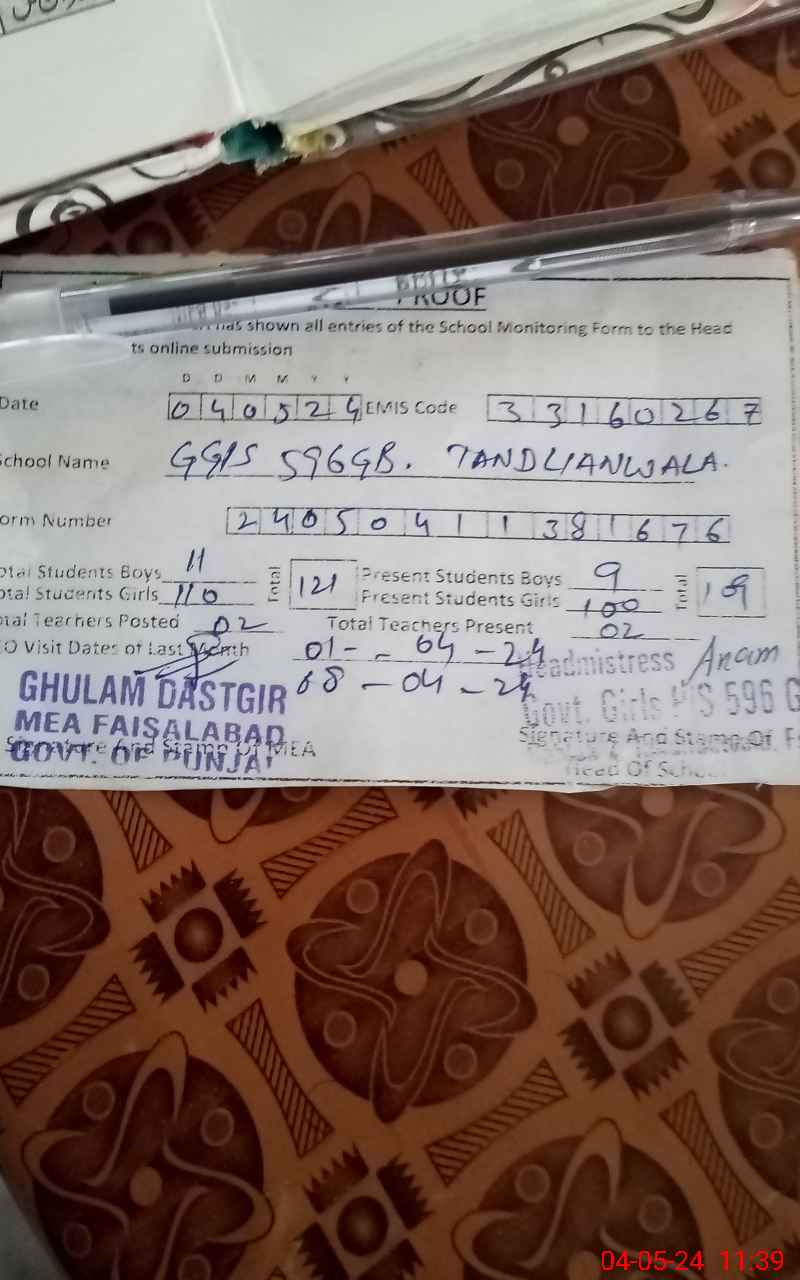 PROOF
has shown all entries of the School Monitoring Form to the Head
ts online submission
D D M M Y Y
Date 040524 EMIS Code 33160267
School Name GGPS 596GB. TANDLIANWALA.
orm Number 24050411381676
otal Students Boys 11 Total 121 Present Students Boys 9 Total 109
otal Students Girls 110 Present Students Girls 100
otal Teachers Posted 02 Total Teachers Present 02
O Visit Dates of Last Month 01- - 04 - 24
08 - 04 - 24
Headmistress Anam
GHULAM DASTGIR
MEA FAISALABAD
GOVT. OF PUNJA
Signature And Stamp Of MEA
Govt. Girls P/S 596 G
Signature And Stamp Of
Head Of Scho
04-05-24 11:39